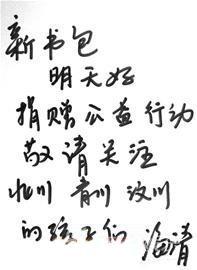 新书包
明天好
捐赠公益行动
敬请关注
北川 青川 汶川
的孩子们 海清